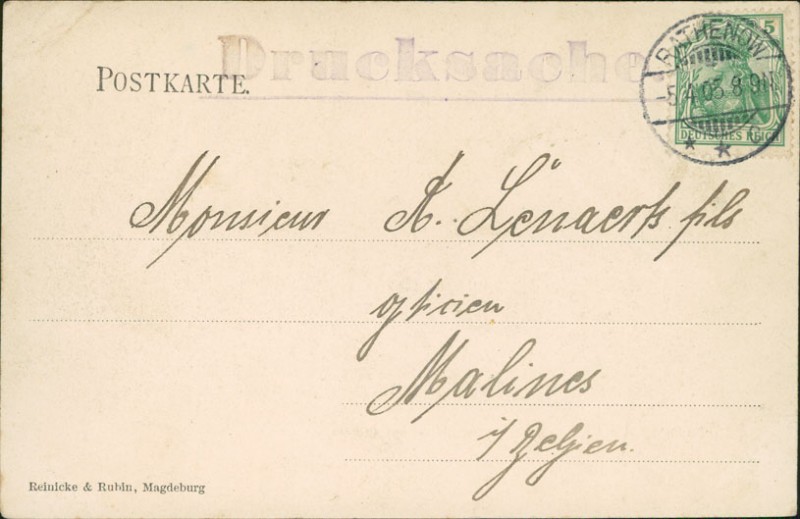 Drucksache
5
RATHENOW
-5.4.05.8-9N.
POSTKARTE.
DEUTSCHES REICH
* *
Monsieur A. Lenaerts fils
opticien
Malines
i/ Belgien.
Reinicke & Rubin, Magdeburg